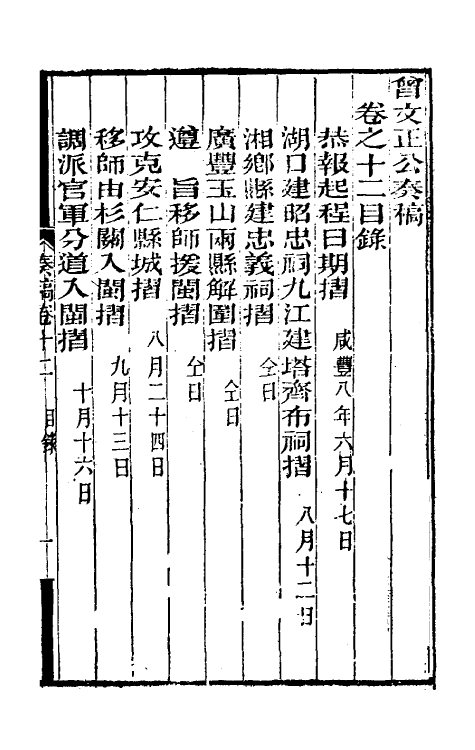 曾文正公奏稿
卷之十二目錄
恭報起程日期摺 咸豐八年六月十七日
湖口建昭忠祠九江建塔齊布祠摺 八月十二日
湘鄉縣建忠義祠摺 仝日
廣豐玉山兩縣解圍摺 仝日
遵 旨移師援閩摺 仝日
攻克安仁縣城摺 八月二十四日
移師由杉關入閩摺 九月十三日
調派官軍分道入閩摺 十月十六日
奏稿卷十二 目錄 一